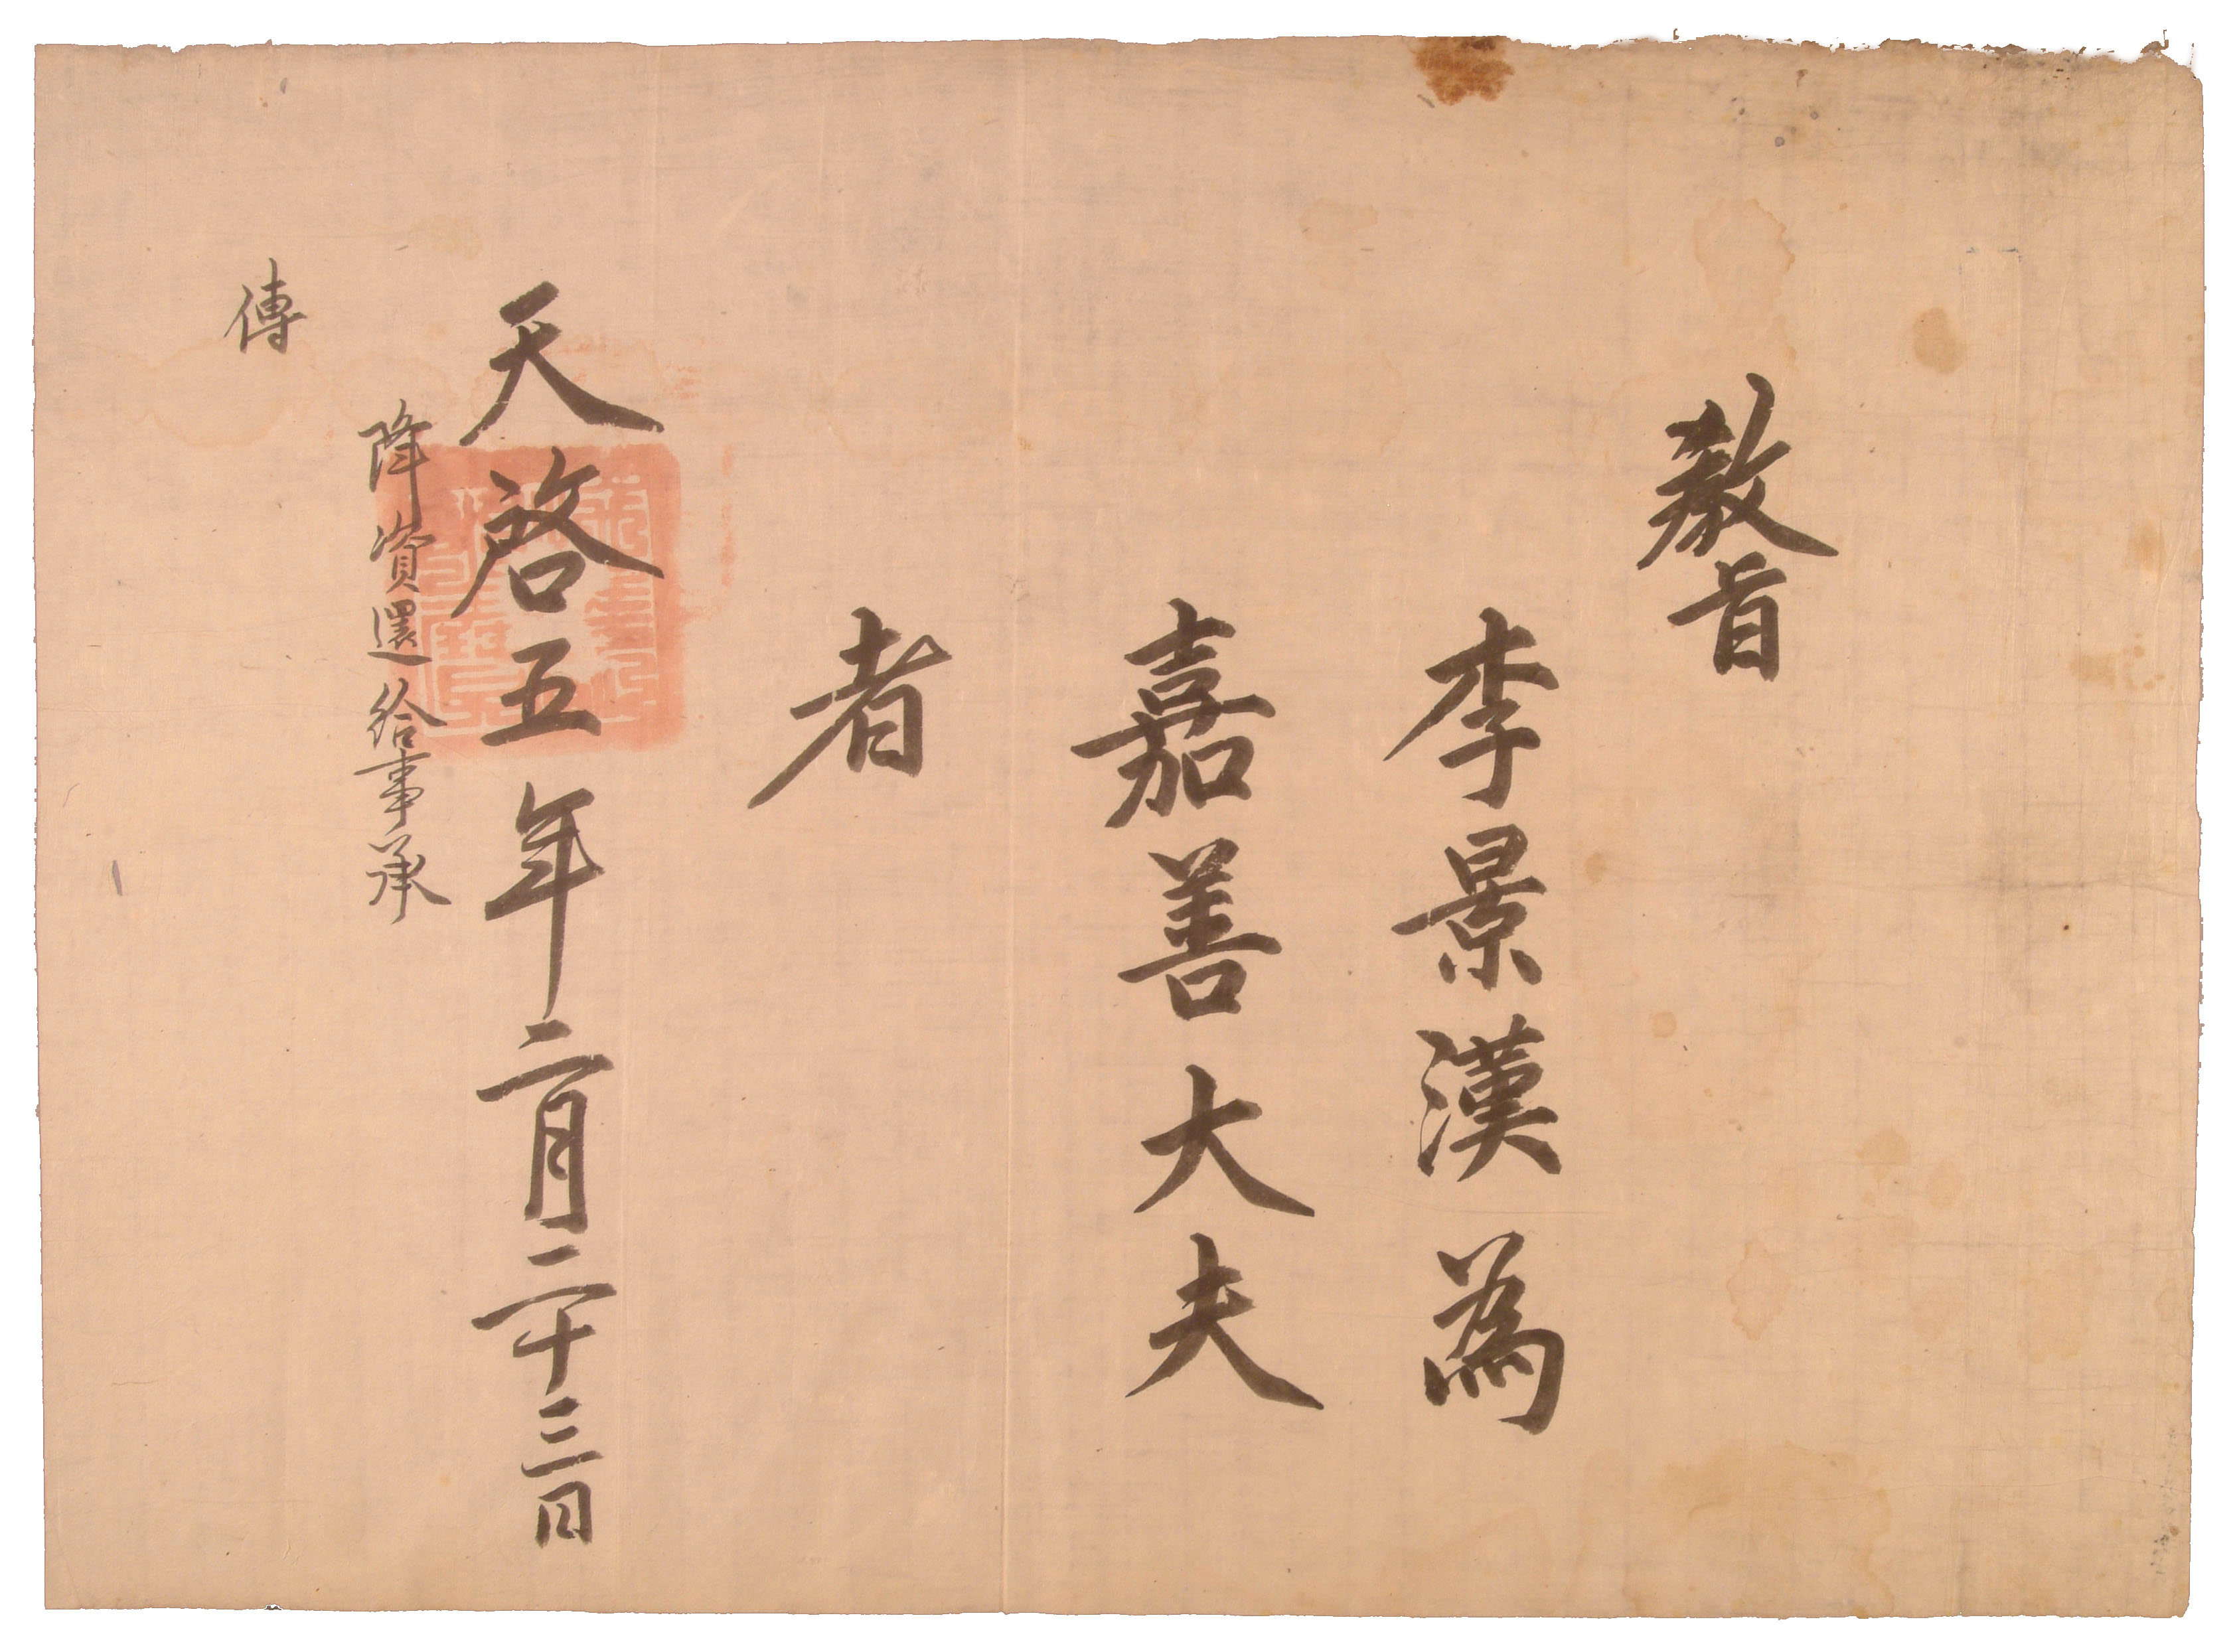 敎旨
李景漢爲
嘉善大夫
者
天啓五年二月二十三日
降資還給事承
傳